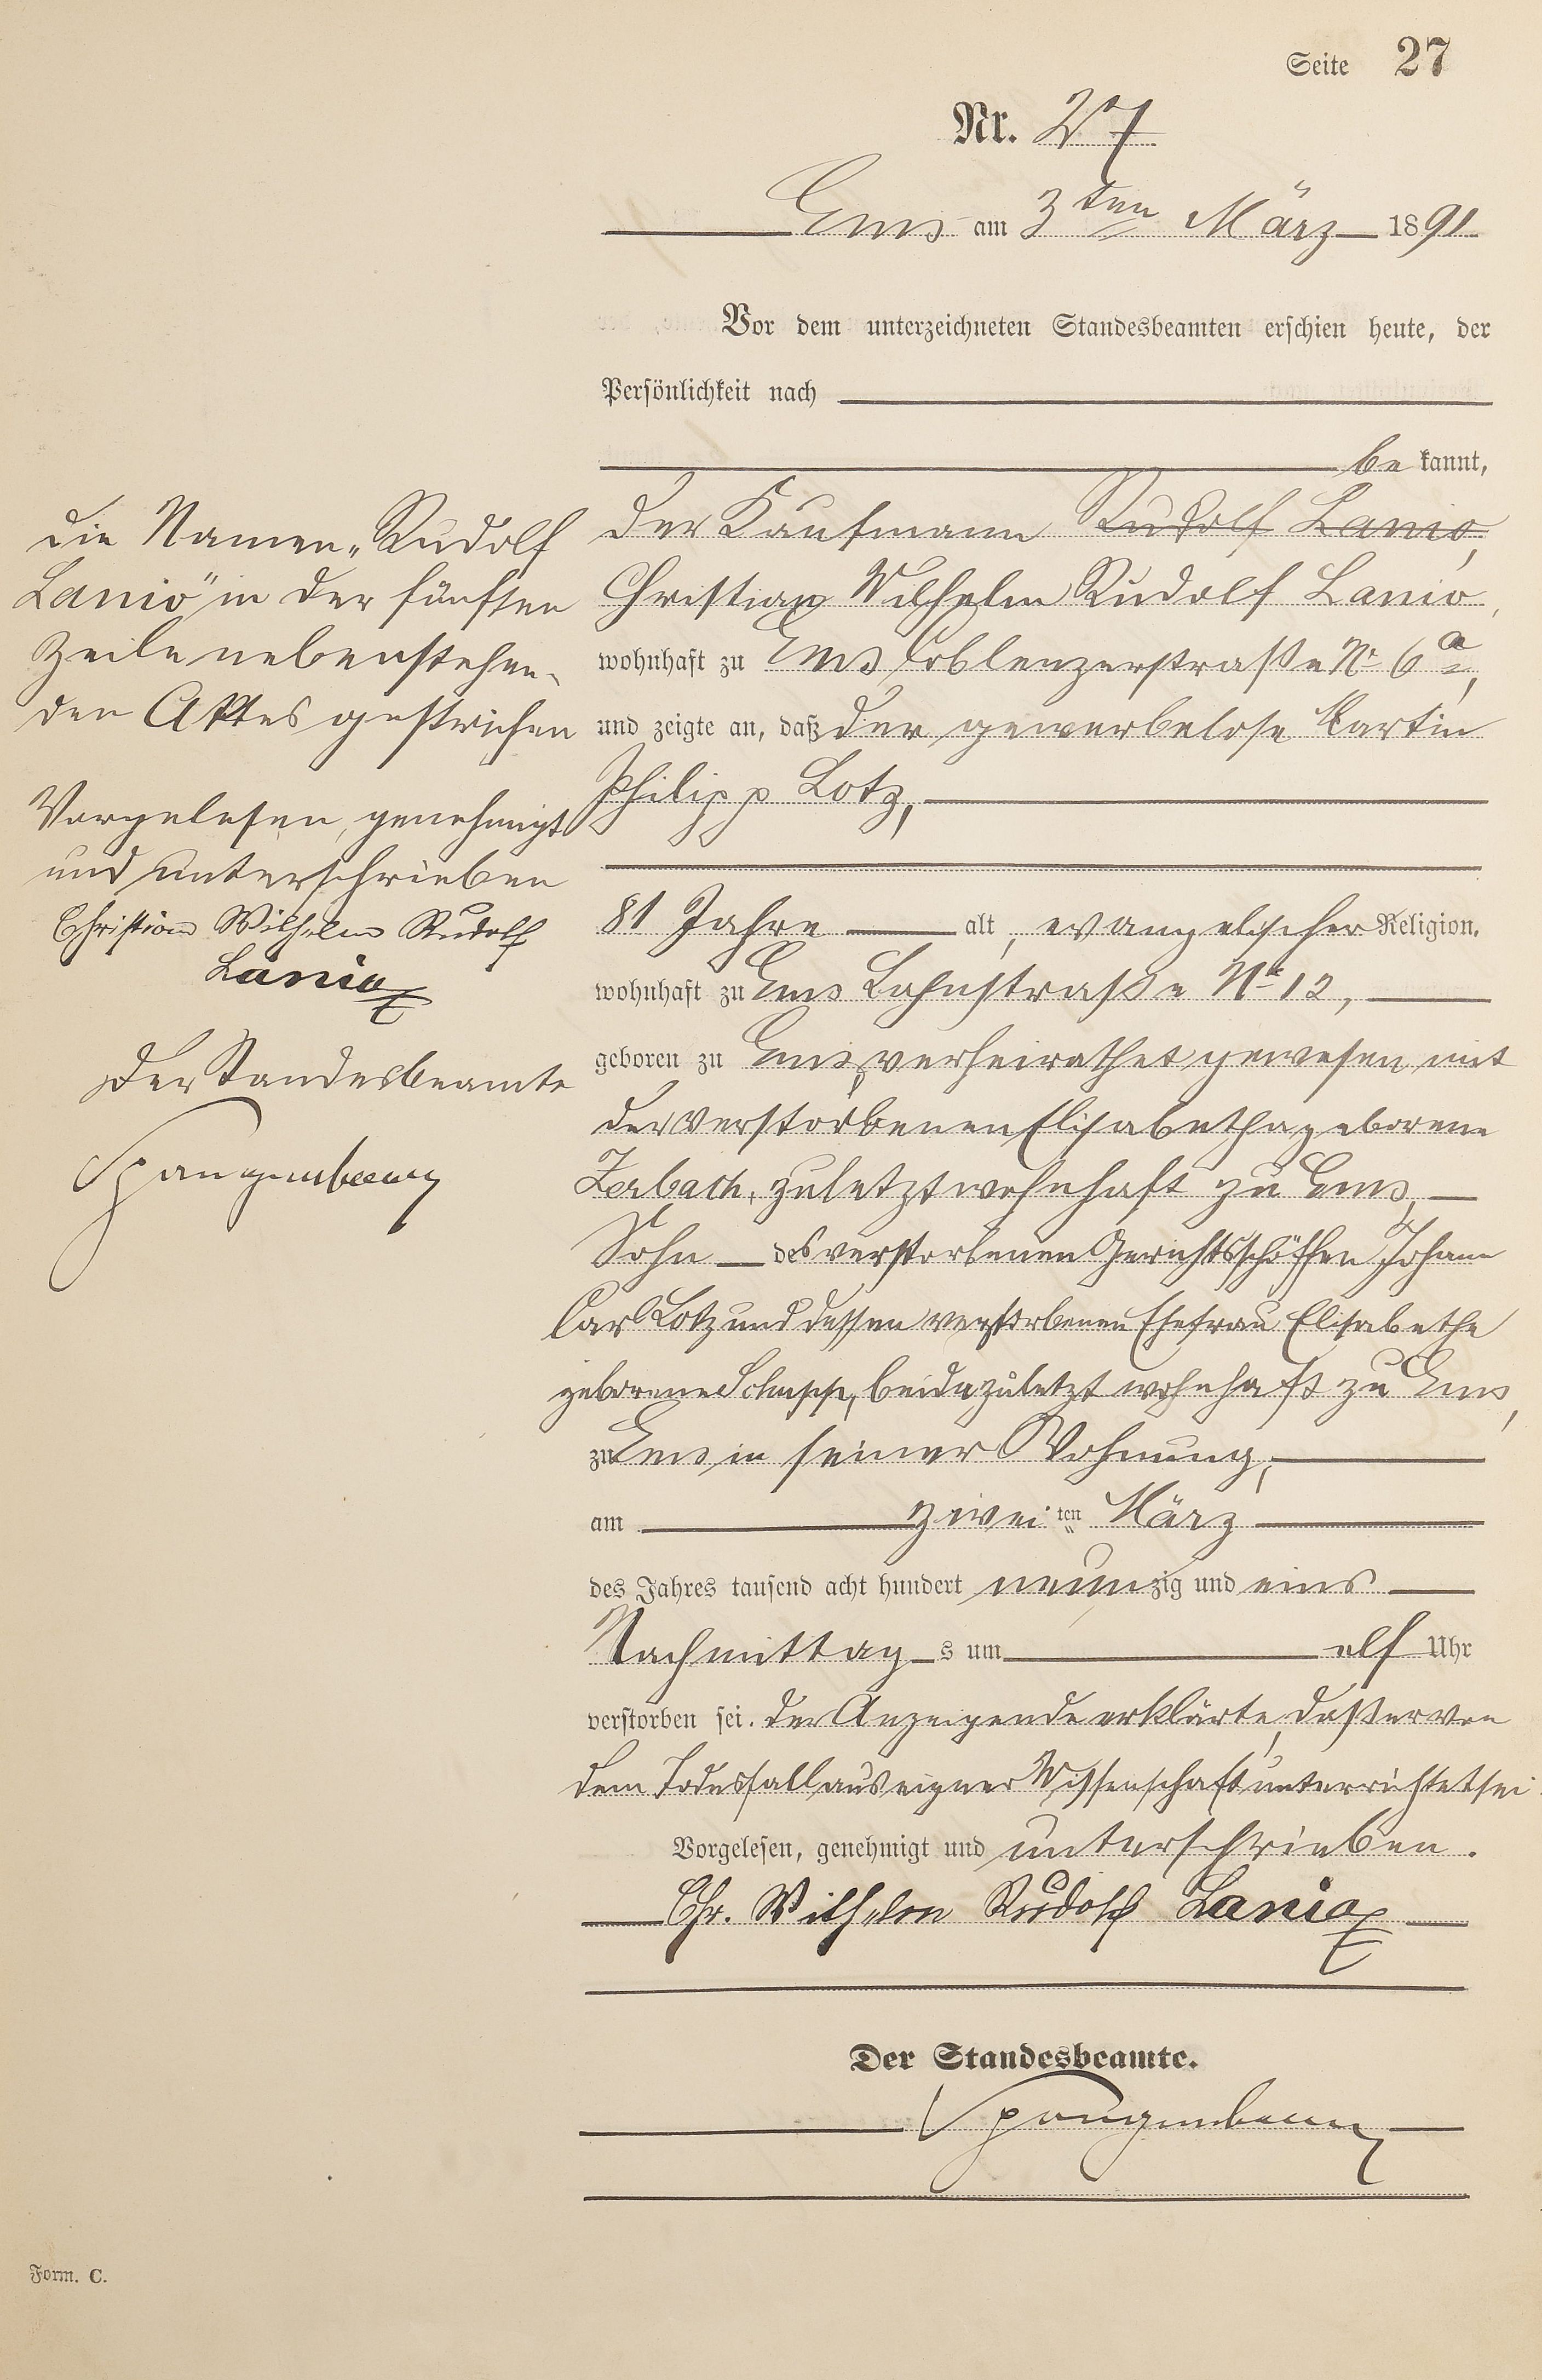 Seite 27
Nr. 27
Ems am 3ten März 1891
Vor dem unterzeichneten Standesbeamten erschien heute, der
Persönlichkeit nach
bekannt,
der Kaufmann Rudolf Lanio,
Christian Wilhelm Rudolf Lanio,
wohnhaft zu Ems Coblenzerstraße No 6a,
und zeigte an, daß der gewerbelose Martin
Philipp Lotz,
81 Jahre alt, evangelischer Religion,
wohnhaft zu Ems Lahnstraße No 12,
geboren zu Ems, verheirathet gewesen mit
der verstorbenen Elisabetha geborene
Zerbach, zuletzt wohnhaft zu Ems,
Sohn des verstorbenen Gerichtsschöffen Johann
Carl Lotz und dessen verstorbenen Ehefrau Elisabethe
geborene Schupp, beide zuletzt wohnhaft zu Ems,
zu Ems in seiner Wohnung,
am zweiten März
des Jahres tausend acht hundert neunzig und eins
Nachmittags um elf Uhr
verstorben sei. Der Anzeigende erklärte, daß er von
dem Todesfall aus eigner Wissenschaft unterrichtet sei.
Vorgelesen, genehmigt und unterschrieben.
Chr. Wilhelm Rudolf Lanio
Der Standesbeamte.
Spangenberg
die Namen „Rudolf
Lanio" in der fünften
Zeile nebenstehen-
den Aktes gestrichen
Vorgelesen, genehmigt
und unterschrieben
Christian Wilhelm Rudolf
Lanio
Der Standesbeamte
Spangenberg
Form. C.